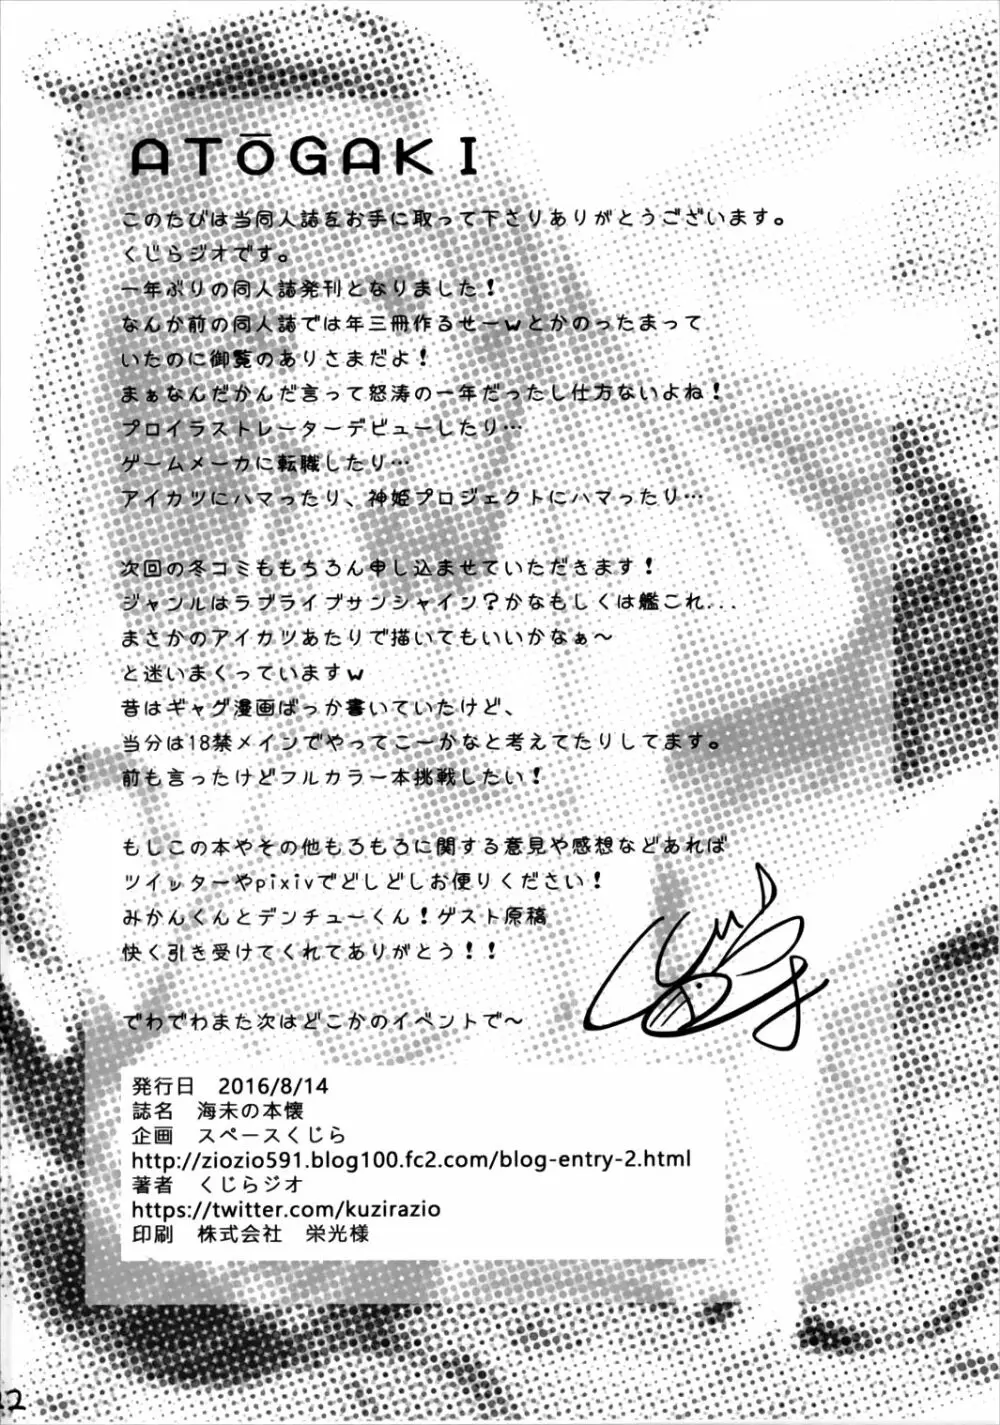 ATŌGAKI
このたびは当同人誌をお手に取って下さりありがとうございます。
くじらジオです。
一年ぶりの同人誌発刊となりました！
なんか前の同人誌では年三冊作るせーwとかのったまって
いたのに御覧のありさまだよ！
まぁなんだかんだ言って怒涛の一年だったし仕方ないよね！
プロイラストレーターデビューしたり…
ゲームメーカに転職したり…
アイカツにハマったり、神姫プロジェクトにハマったり…
次回の冬コミももちろん申し込ませていただきます！
ジャンルはラブライブサンシャイン？かなもしくは艦これ...
まさかのアイカツあたりで描いてもいいかなぁ～
と迷いまくっていますw
昔はギャグ漫画ばっか書いていたけど、
当分は18禁メインでやってこーかなと考えてたりしてます。
前も言ったけどフルカラー本挑戦したい！
もしこの本やその他もろもろに関する意見や感想などあれば
ツイッターやpixivでどしどしお便りください！
みかんくんとデンチューくん！ゲスト原稿
快く引き受けてくれてありがとう！！
でわでわまた次はどこかのイベントで～
発行日　2016/8/14
誌名　海未の本懐
企画　スペースくじら
http://ziozio591.blog100.fc2.com/blog-entry-2.html
著者　くじらジオ
https://twitter.com/kuzirazio
印刷　株式会社　栄光様